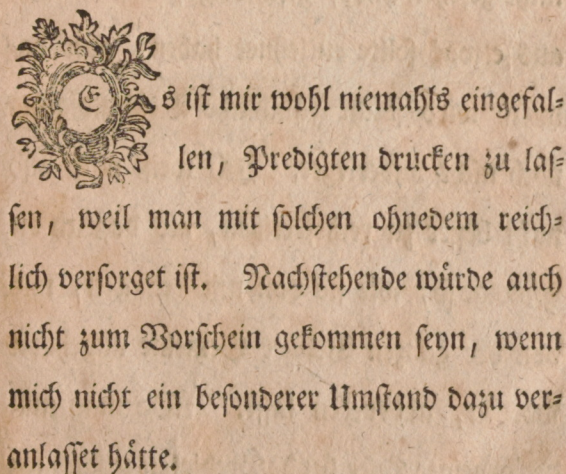 Es ist mir wohl niemahls eingefal-
len, Predigten drucken zu las-
sen, weil man mit solchen ohnedem reich-
lich versorget ist. Nachstehende würde auch
nicht zum Vorschein gekommen seyn, wenn
mich nicht ein besonderer Umstand dazu ver-
anlasset hätte.